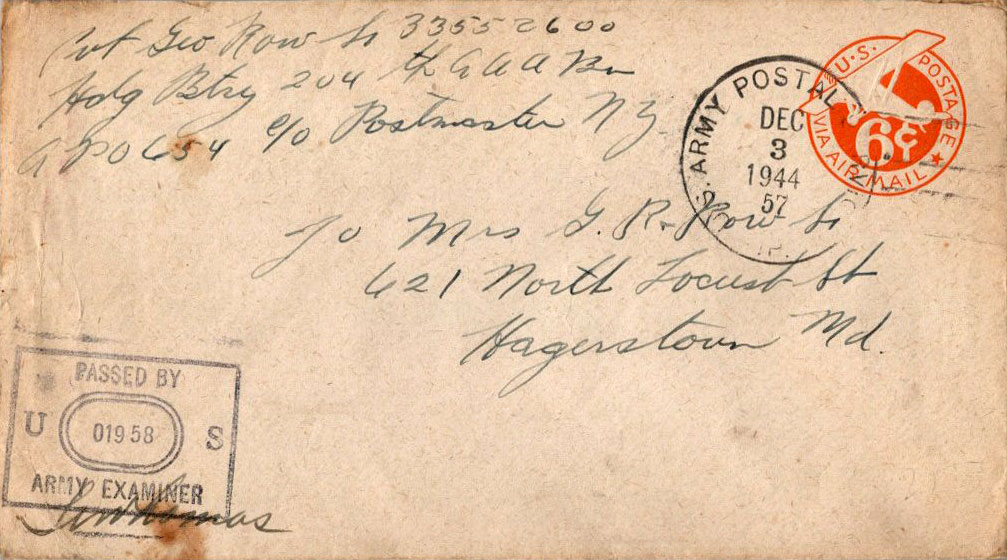 Pvt Geo Row Sr 33552600
Hdq Btry 204th AAA Bn
APO 654 c/o Postmaster N.Y.
U.S. POSTAGE
VIA AIR MAIL
6¢
U.S. ARMY POSTAL SERVICE
DEC
3
1944
57
To Mrs G. R. Row Sr
621 North Locust St
Hagerstown Md.
PASSED BY
U 01958 S
ARMY EXAMINER